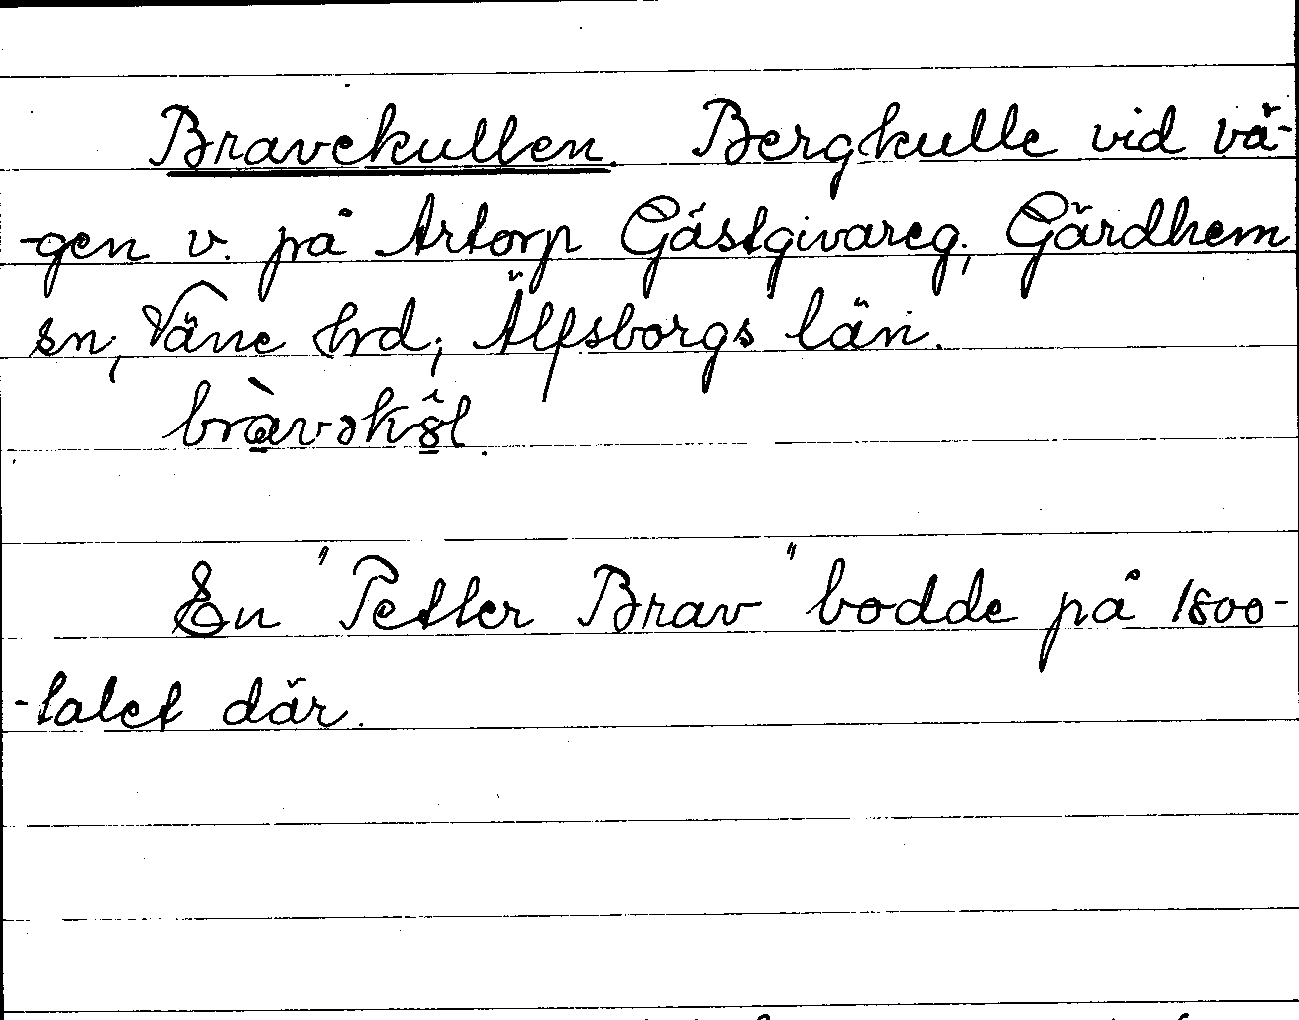 Bravekullen. Bergkulle vid vä-
-gen v. på Artorp Gästgivareg., Gärdhem
sn, Väne hrd, Älfsborgs län.
bràvək
En "Petter Brav" bodde på 1800-
-talet där.